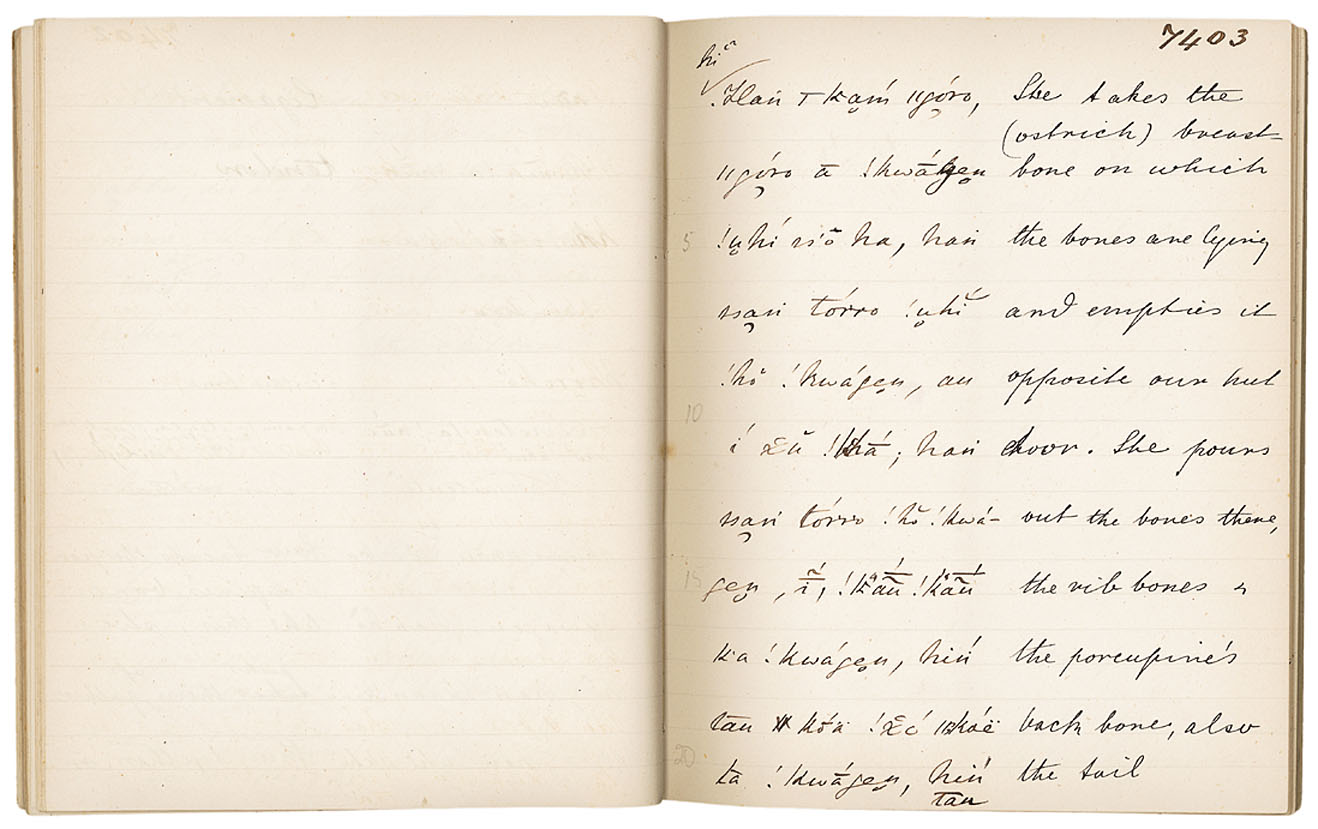 7403
hĩ
!Han ⊤ kaḿ̯ ǁgó̯ro, She takes the
(ostrich) breast-
ǁgó̯ro ā !kwāgen̯ bone on which
5 !u̯hí ss'ŏ ha, han the bones are lying
ssa̯n tórro !u̯hĭ and empties it
!hŏ !kwágen̯, au opposite our hut
10
í !khā́; han door. She pours
ssa̯n tórro !hŏ !kwá- out the bones there,
15 gen̯, the rib bones &
ka !kwágen̯, hiń the porcupine's
tau back bone, also
20 ta !kwā́gen̯, hiń the tail
tau